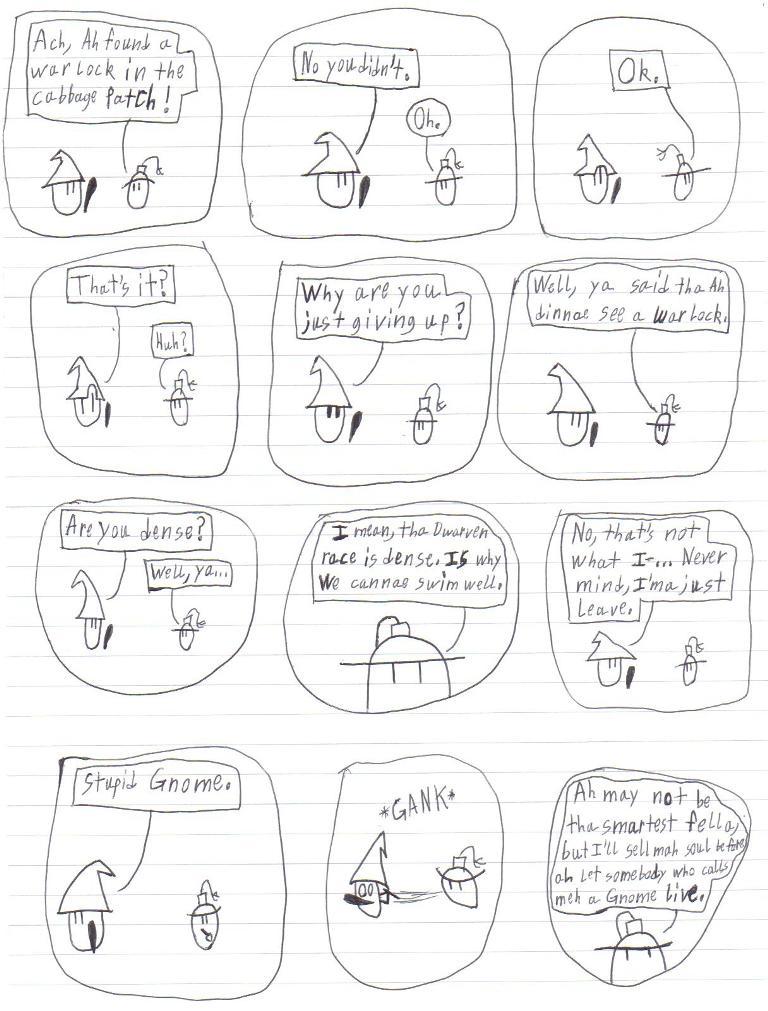 Ach, Ah found a
warlock in the
cabbage Patch!
No you didn't.
Oh.
Ok.
That's it?
Huh?
Why are you
just giving up?
Well, ya said tha Ah
dinnae see a warlock.
Are you dense?
Well, ya...
I mean, tha Dwarven
race is dense. Is why
We cannae swim well.
No, that's not
what I-... Never
mind, I'ma just
Leave.
Stupid Gnome.
*GANK*
Ah may not be
tha smartest fella,
but I'll sell mah soul before
ah Let somebody who calls
meh a Gnome live.